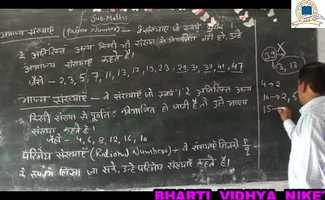 Sub-Maths
अभाज्य संख्याएँ (Prime Number) - वे संख्याएँ जो स्वयं और 1
के अतिरिक्त अन्य किसी भी संख्या से विभाजित नहीं हो, उन्हें
अभाज्य संख्या कहते है।
जैसे - 2, 3, 5, 7, 11, 13, 17, 19, 23, 29, 31, 41, 47
भाज्य संख्याएँ - वे संख्याएँ जो स्वयं व 1 के अतिरिक्त अन्य
किसी संख्या से पूर्णतः विभाजित हो जाती है उसे भाज्य
संख्या कहते है।
जैसे - 4, 6, 8, 12, 16, 10
परिमेय संख्याएँ (Rational Numbers) - वे संख्याएँ जिन्हें p/q
के रूप में लिखा जा सके, उन्हें परिमेय संख्याएँ कहते है।
39
3, 13
4→2
10→2, 5
15→
BHARTI VIDHYA NIKET